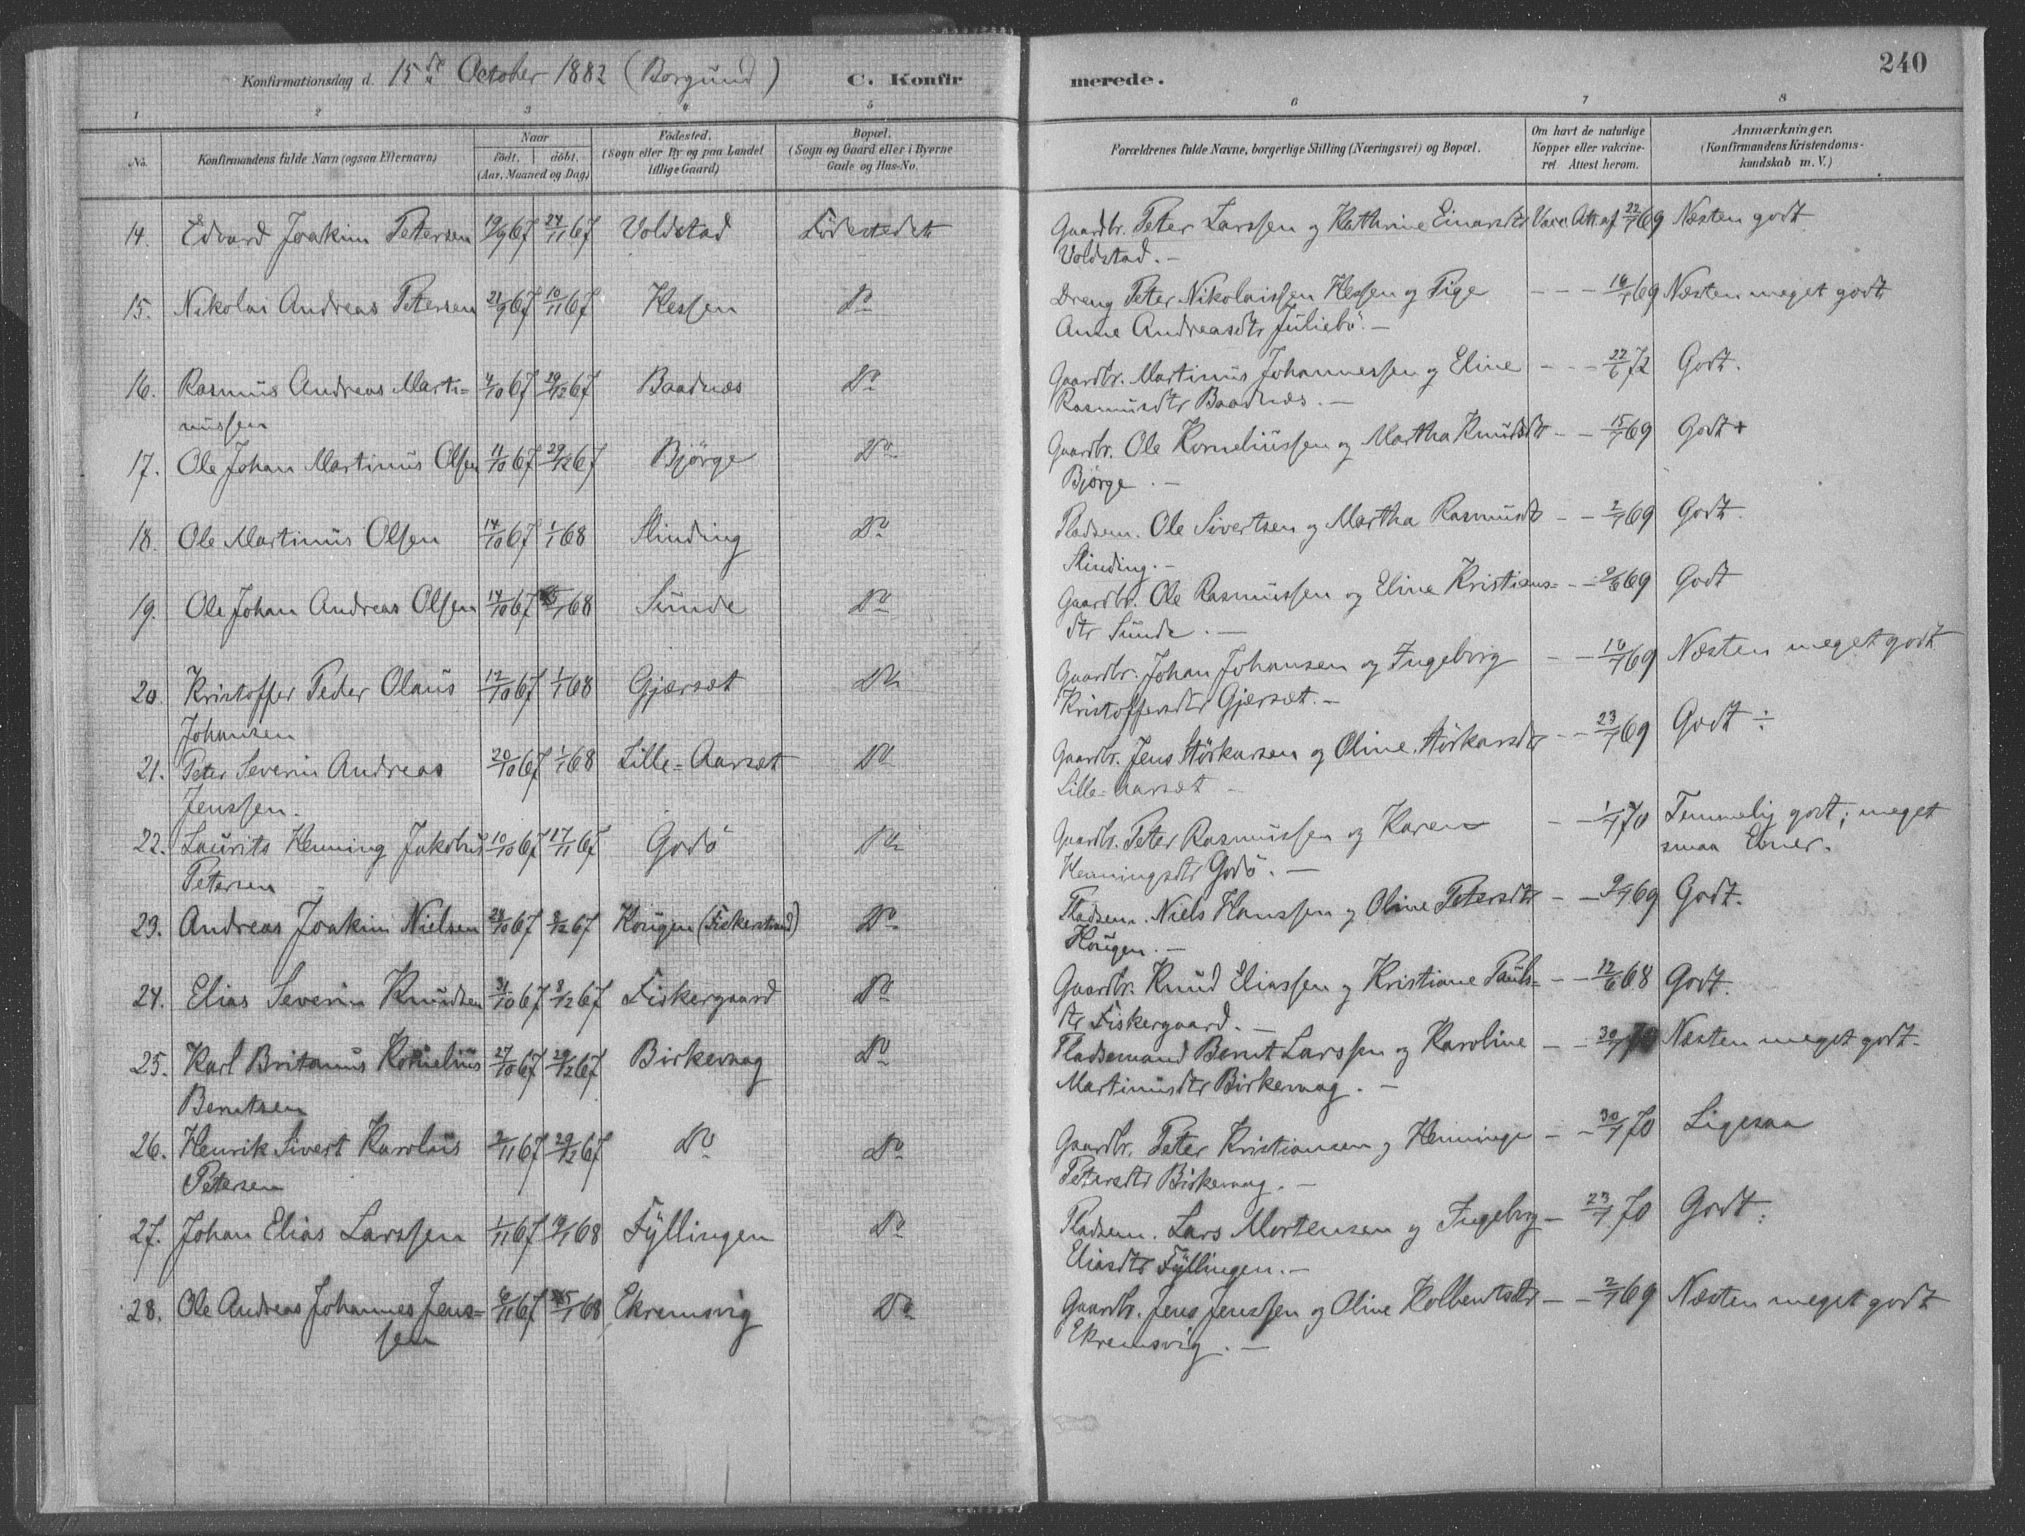 240
Konfirmationsdag d. 15de October 1882 (Borgund) C. Konfirmerede.
1 2 3 4 5 6 7 8
No. Konfirmandens fulde Navn (ogsaa Efternavn) Naar födt. döbt. (Aar, Maaned og Dag) Födested. (Sogn eller By og paa Landet tillige Gaard) Bopæl. (Sogn og Gaard eller i Byerne Gade og Hus-No. Forældrenes fulde Navne, borgerlige Stilling (Næringsvei) og Bopæl. Om havt de naturlige Kopper eller vakcineret Attest herom. Anmærkninger. (Konfirmandens Kristendomskundskab m. V.)
14. Edvard Joakim Petersen 19/9 67 24/11 67 Voldstad Födestedet Gaardbr. Peter Larssen og Kathrine Einarsdtr Vacc. Att. af 22/7 69 Næsten godt
Voldstad. -
15. Nikolai Andreas Petersen 21/9 67 10/11 67 Hessen Do Dreng Peter Nikolaissen Hessen og Pige - - - 16/7 69 Næsten meget godt
Anne Andreasdtr Juliebö. -
16. Rasmus Andreas Marti- 4/10 67 29/12 67 Baadnæs Do Gaardbr. Martinus Johannessen og Eline - - - 22/6 72 Godt.
nussen Rasmusdtr Baadnæs. -
17. Ole Johan Martinus Olsen 11/10 67 29/12 67 Bjørge Do Gaardbr. Ole Korneliussen og Martha Knudsdtr - - 15/7 69 Godt +
Bjørge. -
18. Ole Martinus Olsen 14/10 67 1/1 68 Slinding Do Pladsem. Ole Sivertsen og Martha Rasmusdtr - - 2/7 69 Godt.
Slinding. -
19. Ole Johan Andreas Olsen 14/10 67 /1 68 Sunde Do Gaardbr. Ole Rasmussen og Eline Kristians= - - 9/6 69 Godt
dtr Sunde. -
20. Kristoffer Peder Olaus 12/10 67 1/1 68 Gjærsæt Do Gaardbr. Johan Johansen og Ingeborg - - 10/7 69 Næsten meget godt
Johansen Kristoffersdtr Gjærsæt. -
21. Peter Severin Andreas 20/10 67 1/1 68 Lille=Aarsæt Do Gaardbr. Jens Störkarsen og Oline Störkarsdtr - - 23/7 69 Godt ÷
Jenssen. Lille=Aarsæt -
22. Laurits Henning Jakobus 10/10 67 17/11 67 Godö Do Gaardbr. Peter Rasmussen og Karen - - 1/7 70 Temmelig godt; meget
Petersen Henningsdtr Godö. - smaa Evner.
23. Andreas Joakim Nielsen 28/10 67 8/12 67 Kougen (Fiskerstrand) Do Pladsem. Niels Hanssen og Oline Petersdtr - - 9/7 69 Godt.
Kougen. -
24. Elias Severin Knudsen 31/10 67 8/12 67 Fiskergaard Do Gaardbr. Knud Eliassen og Kristiane Pauls= - - 12/6 68 Godt.
dtr Fiskergaard. -
25. Karl Britanus Kornelius 27/10 67 29/12 67 Birkevaag Do Pladsemand Bernt Larssen og Karoline - - 30/7 70 Næsten meget godt.
Berntsen Martinusdtr Birkevaag. -
26. Henrik Sivert Karolus 2/11 67 29/12 67 Do Do Gaardbr. Peter Kristiansen og Henninge - - 30/7 70 Ligesaa
Petersen Petersdtr Birkevaag. -
27. Johan Elias Larssen 1/11 67 /1 68 Fyllingen Do Pladsem. Lars Mortensen og Ingeborg - 23/7 70 Godt.
Eliasdtr Fyllingen. -
28. Ole Andreas Johannes Jens= 6/11 67 /1 68 Ekremsvig Do Gaardbr. Jens Jenssen og Oline Kolbentsdtr - - 2/7 69 Næsten meget godt
sen Ekremsvig. -